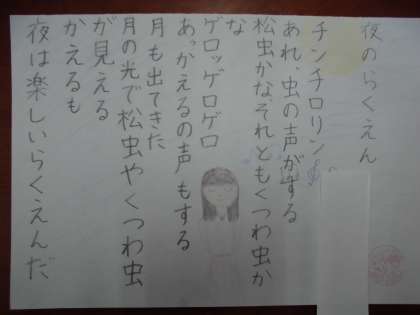 夜のらくえん
チンチロリン
あれ、虫の声がする
松虫かな、それともくつわ虫か
な
ゲロッゲロゲロ
あっ、かえるの声もする
月も出てきた
月の光で松虫やくつわ虫
が見える
かえるも
夜は楽しいらくえんだ